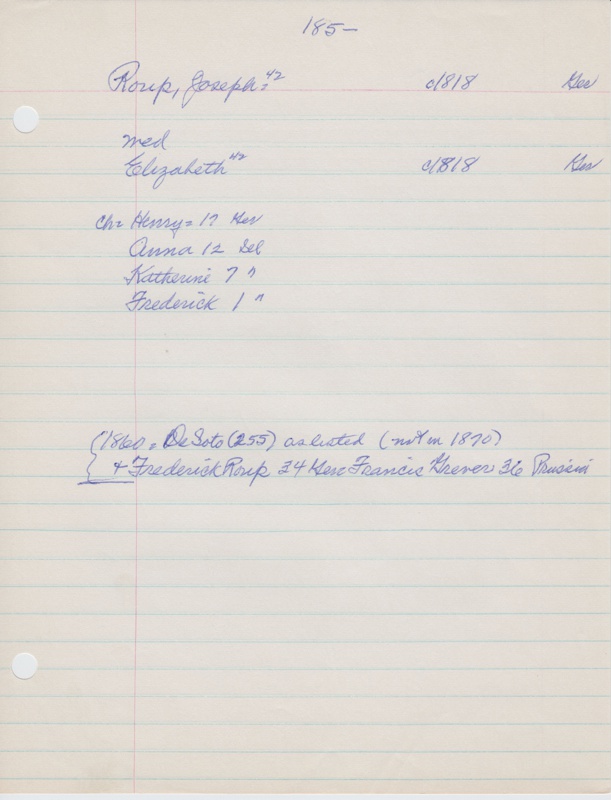 185—
Roup, Joseph = 42 c1818 Ger
med
Elizabeth 42 c1818 Ger
ch = Henry = 17 Ger
Anna 12 Del
Katherine 7 "
Frederick 1 "
(1860 = DeSoto (255) as listed (not in 1870)
+ Frederick Roup 34 Ger Francis Grever 36 Prussia